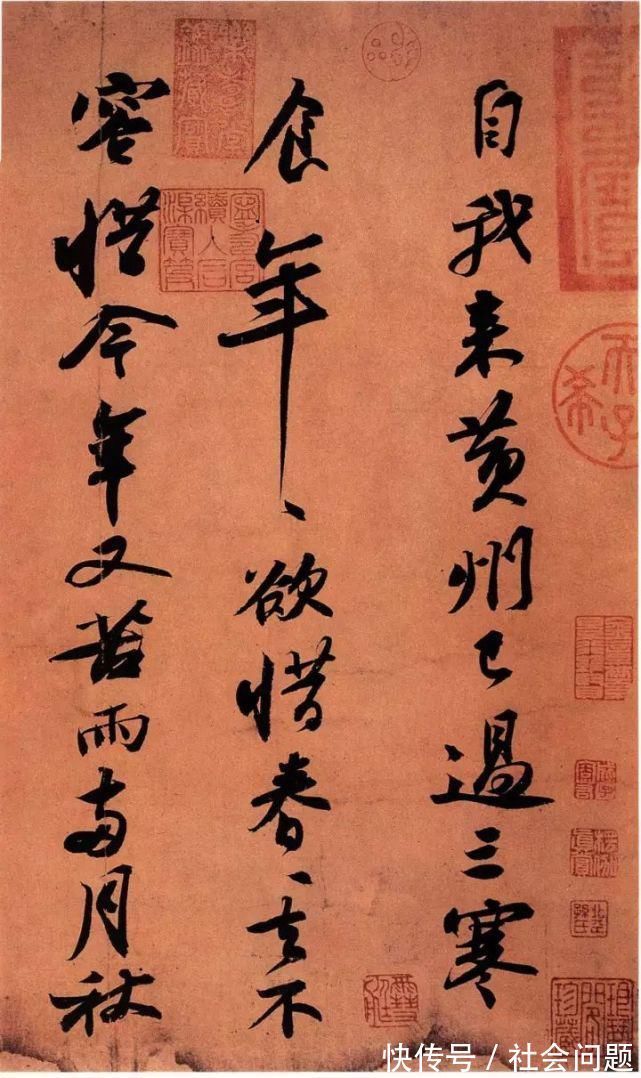 自我来黄州已過三寒
食年〻欲惜春〻去不
容惜今年又苦雨兩月秋
天子
希
快传号／社会问题